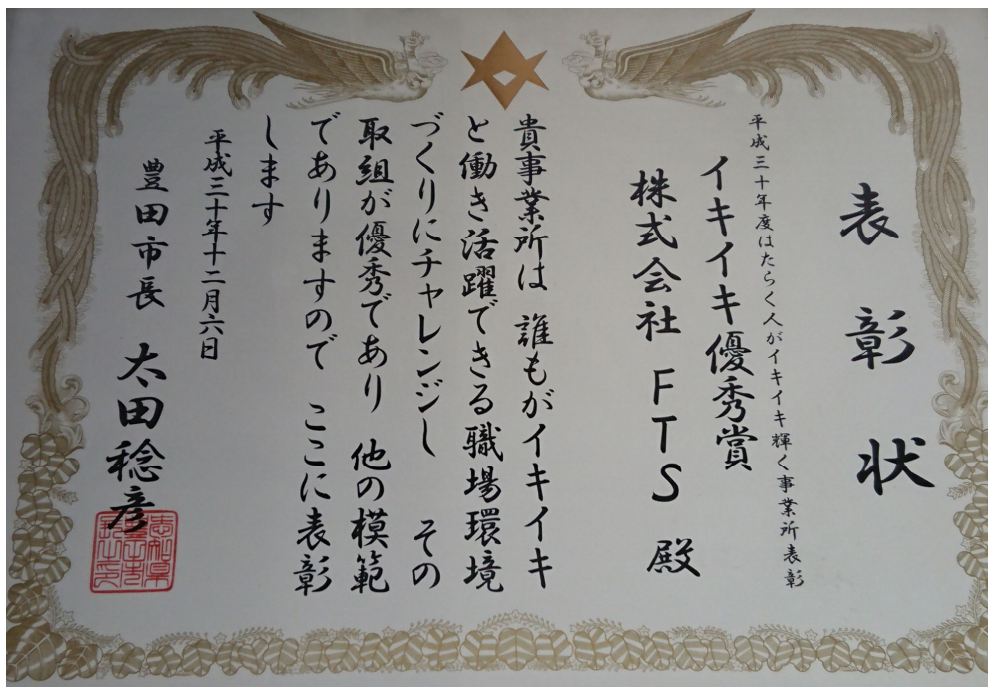 表彰状
平成三十年度はたらく人がイキイキ輝く事業所表彰
イキイキ優秀賞
株式会社 FTS 殿
貴事業所は 誰もがイキイキ
と働き活躍できる職場環境
づくりにチャレンジし その
取組が優秀であり 他の模範
でありますので ここに表彰
します
平成三十年十二月六日
豊田市長 太田稔彦